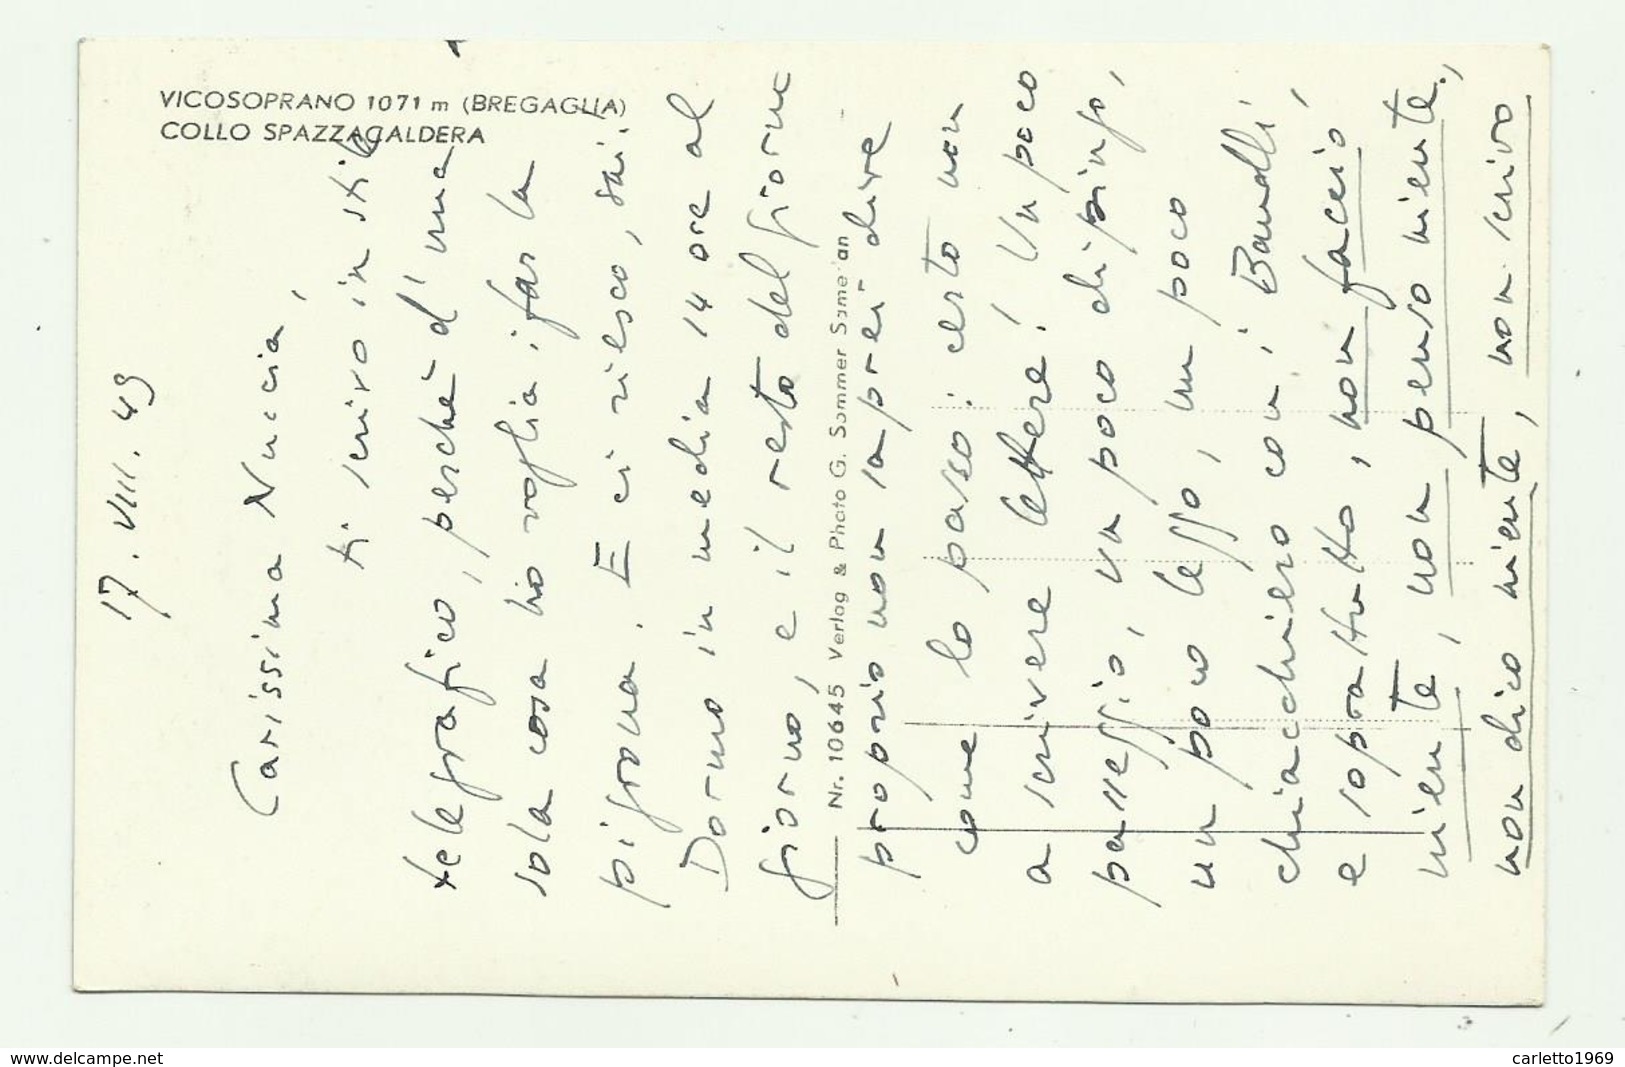 VICOSOPRANO 1071 m (BREGAGLIA)
COLLO SPAZZACALDERA
17. VIII. 49
Carissima Nuccia,
ti scrivo in stile
telegrafico, perchè d'una
sola cosa ho voglia: far la
pigrona. E ci riesco, sai.
Dormo in media 14 ore al
giorno, e il resto del giorno
proprio non saprei dire
come lo passo: certo non
a scrivere lettere! Un poco
passeggio, un poco dipingo,
un poco leggo, un poco
chiacchiero con i
e soprattutto, non faccio
niente, non penso niente,
non dico niente, non scrivo
Nr. 10645 Verlag & Photo G. Sommer Samedan
www.delcampe.net
carletto1969